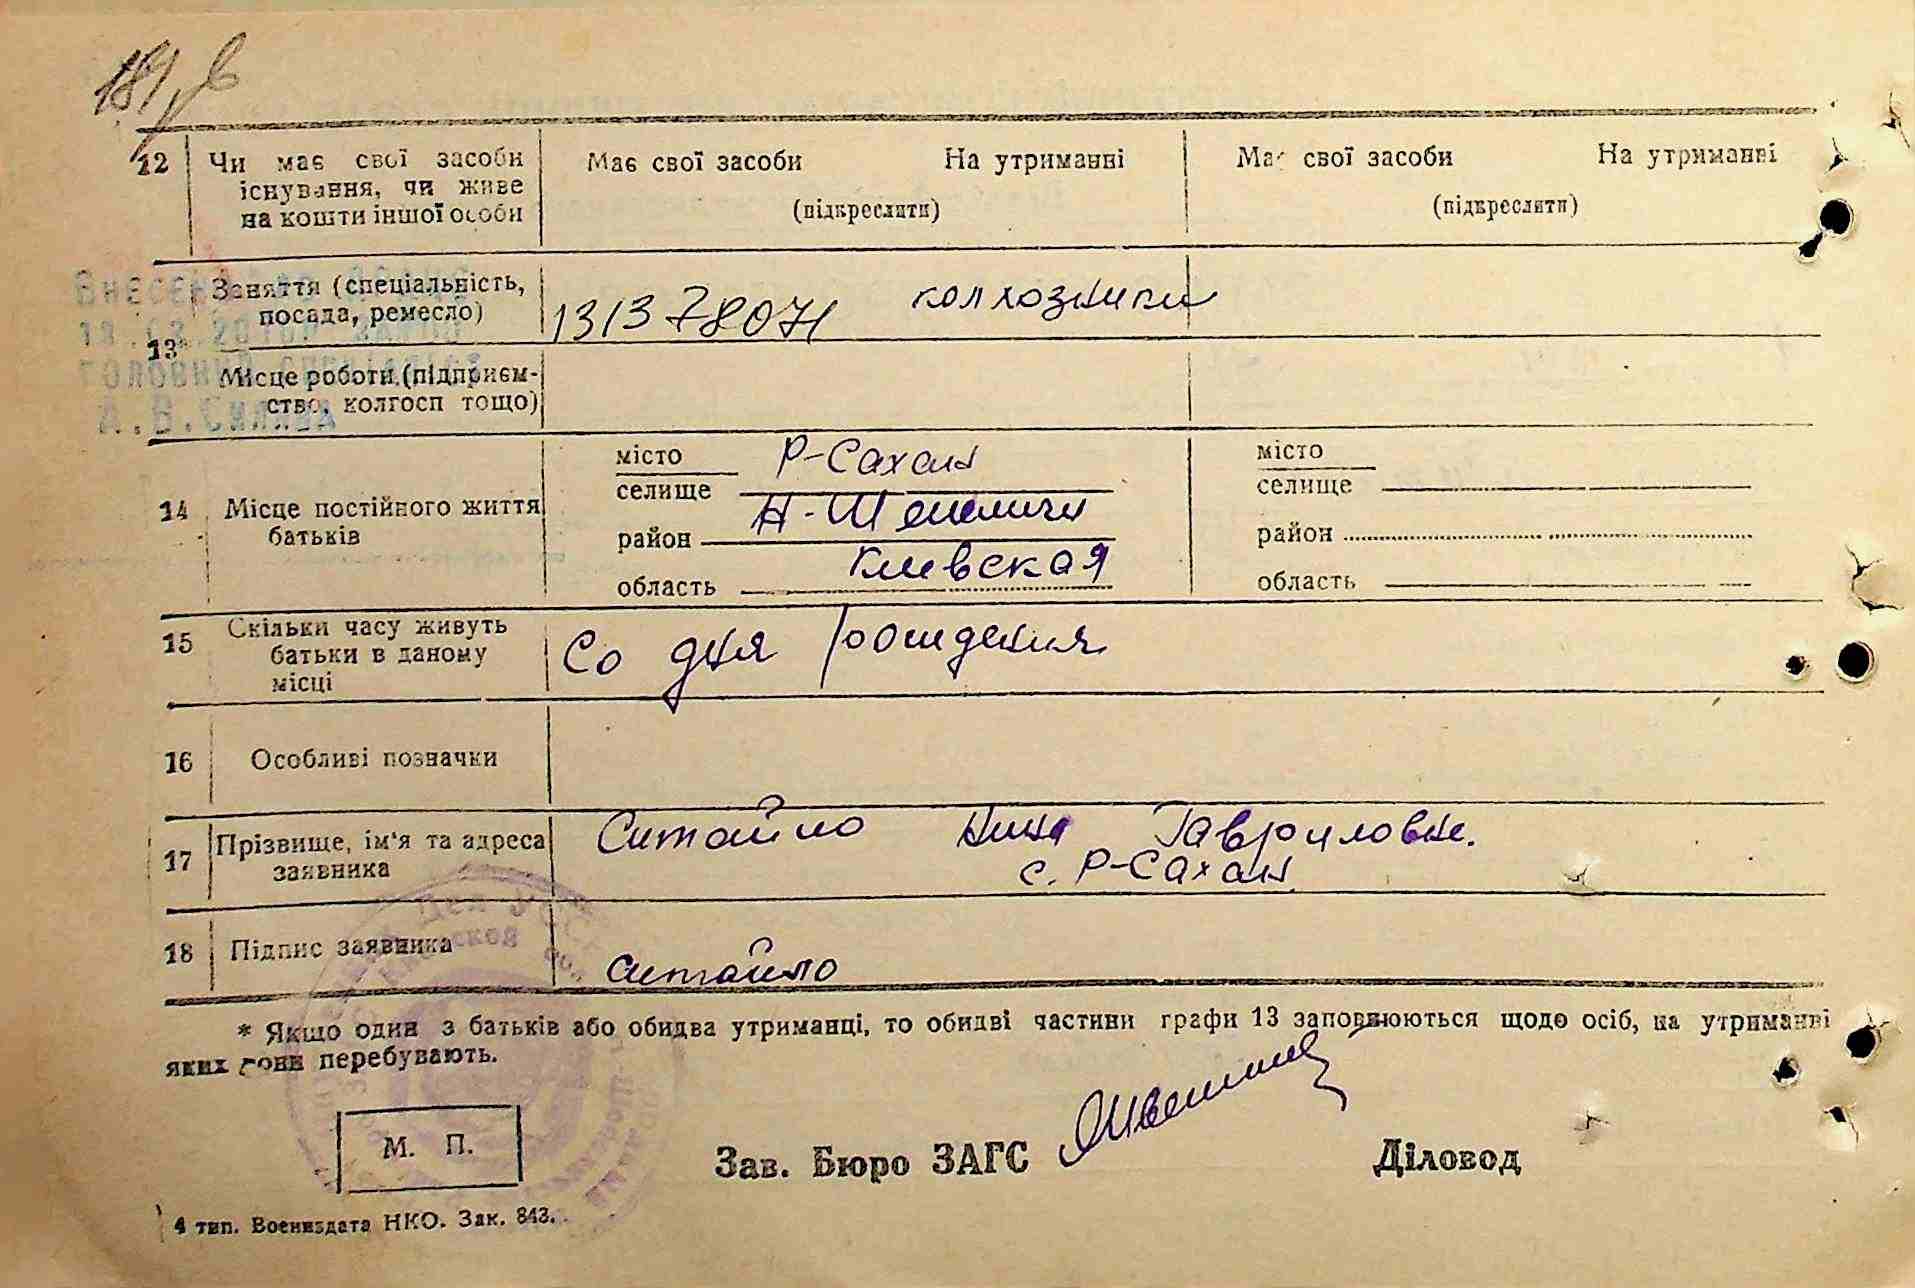 12 Чи має свої засоби існування, чи живе на кошти іншої особи
Має свої засоби На утриманні
(підкреслити)
Має свої засоби На утриманні
(підкреслити)
13*
Заняття (спеціальність,
посада, ремесло)
131378071 колхозники
Місце роботи (підприєм-
ство, колгосп тощо)
А.В.
14 Місце постійного життя
батьків
місто Р-Сахан
селище
район Н-Шепеличи
область Киевская
місто
селище
район
область
15 Скільки часу живуть
батьки в даному
місці
Со дня рождения
16 Особливі позначки
17 Прізвище, ім'я та адреса
заявника
Ситайло Нина Гавриловн.
с. Р-Сахан
18 Підпис заявника
Ситайло
* Якщо один з батьків або обидва утриманці, то обидві частини графи 13 заповнюються щодо осіб, на утриманні
яких вони перебувають.
М. П.
Зав. Бюро ЗАГС
Діловод
4 тип. Воениздата НКО. Зак. 843.